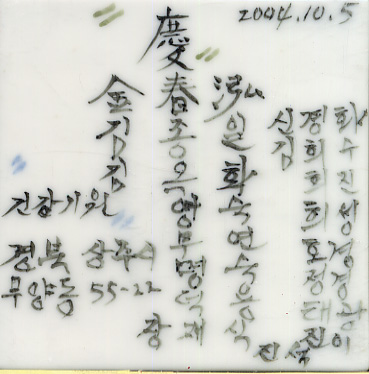 2004.10.5
慶春종옥영두명덕재
金김김
泓일화숙연숙용식
신김
정희희희호정태진
화수진성경경광이
건강기원
경북 상주시
무양동 55-22